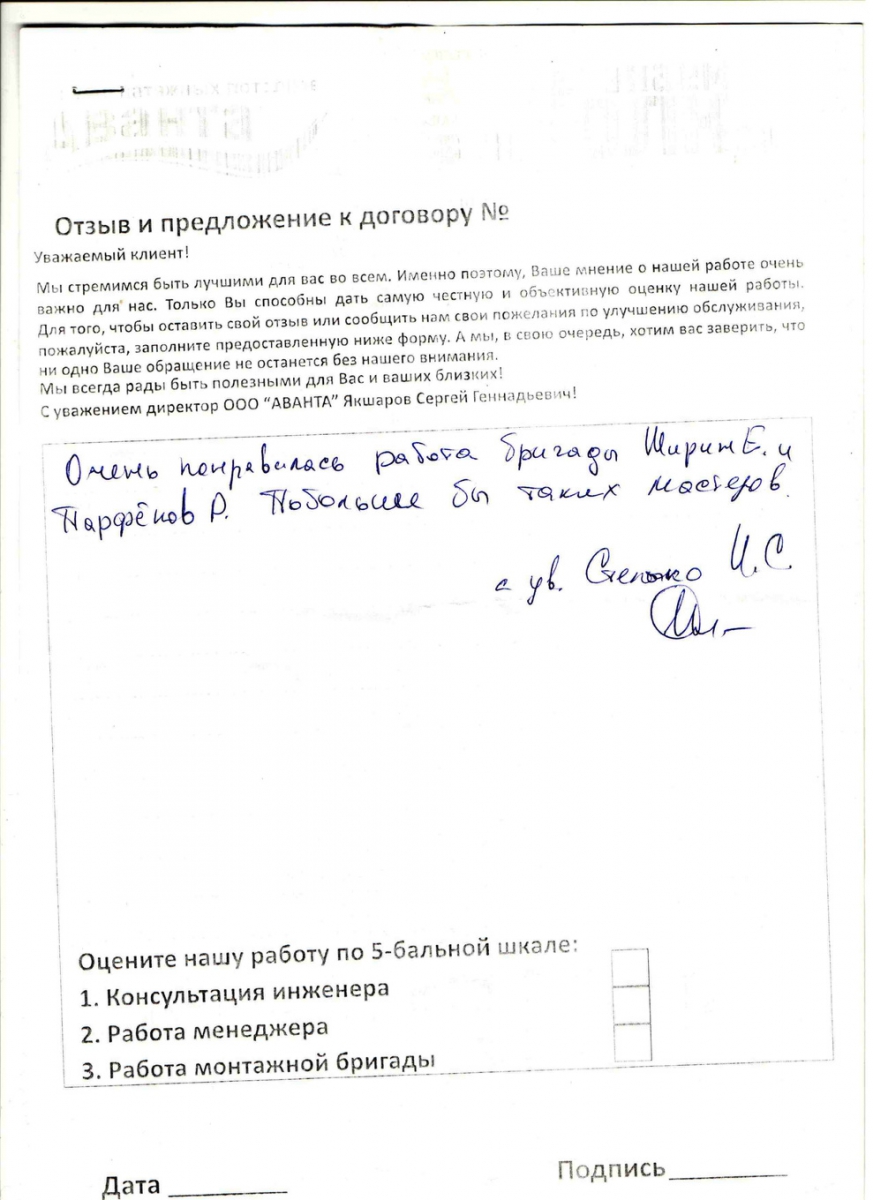 Отзыв и предложение к договору №
Уважаемый клиент!
Мы стремимся быть лучшими для вас во всем. Именно поэтому, Ваше мнение о нашей работе очень
важно для нас. Только Вы способны дать самую честную и объективную оценку нашей работы.
Для того, чтобы оставить свой отзыв или сообщить нам свои пожелания по улучшению обслуживания,
пожалуйста, заполните предоставленную ниже форму. А мы, в свою очередь, хотим вас заверить, что
ни одно Ваше обращение не останется без нашего внимания.
Мы всегда рады быть полезными для Вас и ваших близких!
С уважением директор ООО “АВАНТА” Якшаров Сергей Геннадьевич!
Очень понравилась работа бригады Ширин Е. и
Парфёнов Р. Побольше бы таких мастеров.
с ув. И.С.
Оцените нашу работу по 5-бальной шкале:
1. Консультация инженера
2. Работа менеджера
3. Работа монтажной бригады
Дата Подпись